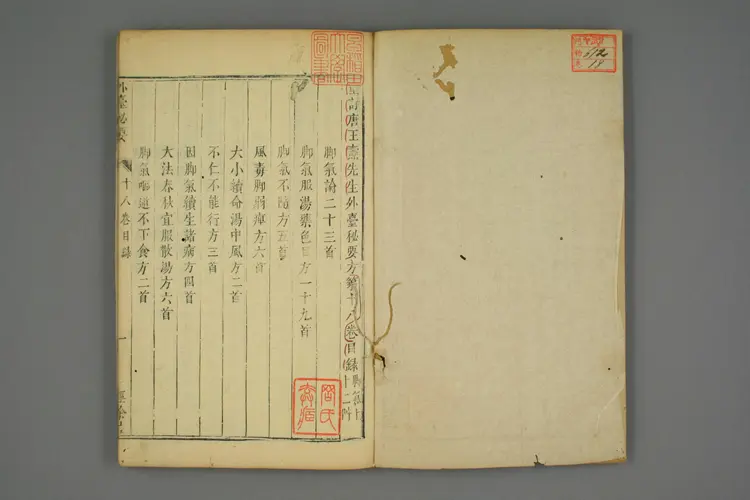 唐王燾先生外臺秘要方第十八卷目錄脚氣上一十二門
脚氣論二十三首
脚氣服湯藥色目方一十九首
脚氣不隨方五首
風毒脚弱痺方六首
大小續命湯中風方二首
不仁不能行方三首
因脚氣續生諸病方四首
大法春秋宜服散湯方六首
脚氣嘔逆不下食方二首
外臺秘要 十八卷目錄 一